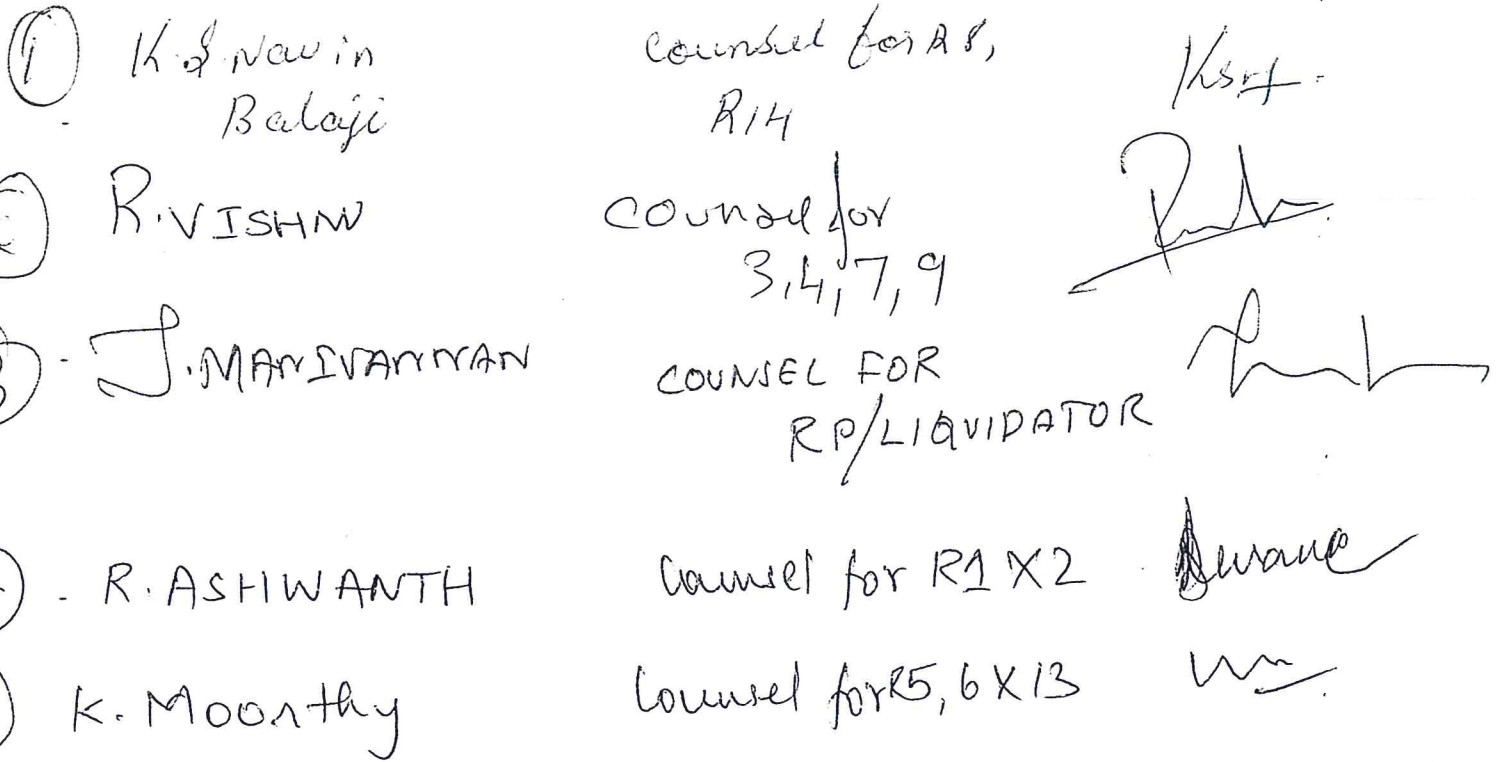 ① K S Navin counsel for R8,
Balaji R14
R. VISHNU counsel for
3,4,7,9
J. MANIVANNAN COUNSEL FOR
RP/LIQUIDATOR
R. ASHWANTH Counsel for R1 X 2
K. Moorthy Counsel for R5, 6 X 13